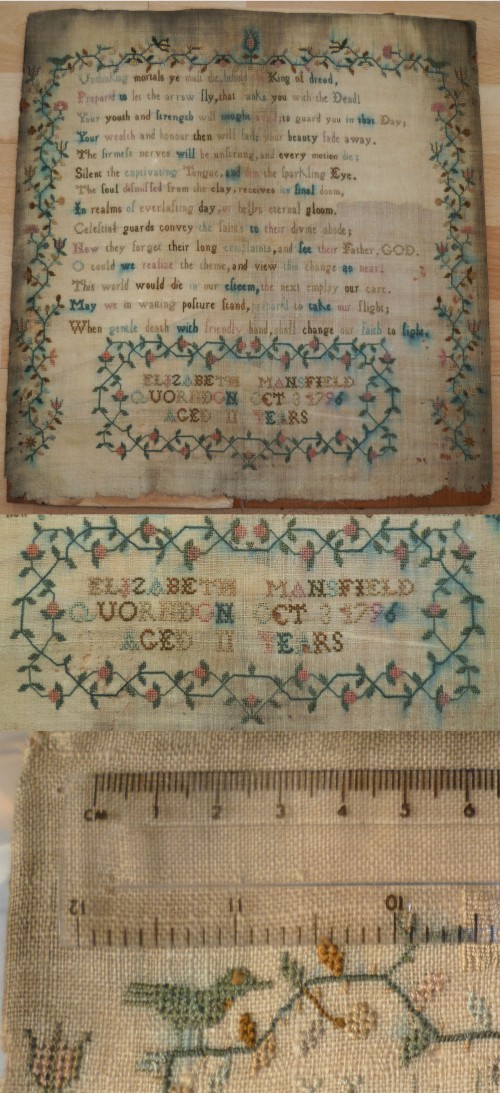 Unthinking mortals ye must die, behold the King of dread,
Prepard to let the arrow fly, that ranks you with the Dead!
Your youth and strength will nought avail to guard you in that Day;
Your wealth and honour then will fade your beauty fade away.
The firmest nerves will be unstrung, and every motion die;
Silent the captivating Tongue, and dim the sparkling Eye.
The soul dismissed from the clay, receives its final doom,
In realms of everlasting day, or hell's eternal gloom.
Celestial guards convey the saints to their divine abode;
Now they forget their long complaints, and see their Father, GOD.
O could we realize the theme, and view this change as near!
This world would die in our esteem, the next employ our care.
May we in waiting posture stand, prepard to take our flight;
When gentle death with friendly hand, shall change our faith to sight.
ELIZABETH MANSFIELD
QUORNDON OCT 3 1796
AGED 11 YEARS
ELIZABETH MANSFIELD
QUORNDON OCT 3 1796
AGED 11 YEARS
CM 1 2 3 4 5 6
12 11 10